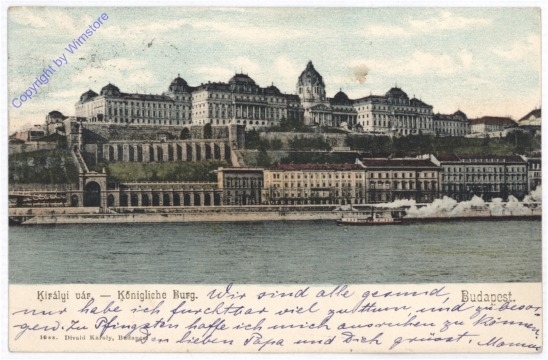 Copyright by Wimstore
Király vár. — Königliche Burg.
Budapest.
Wir sind alle gesund,
nur habe ich furchtbar viel zuthum, und zu beso-
gen. Zu Pfingsten hoffe ich mich ausruhen zu können
lieben Papa und Dich grüsst. Mama
Divald Károly, Budapest